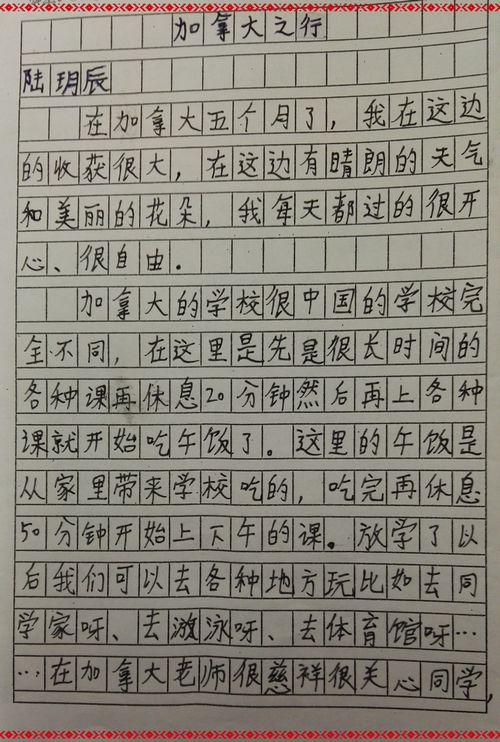 加拿大之行
陆玥辰
在加拿大五个月了，我在这边
的收获很大，在这边有晴朗的天气
和美丽的花朵，我每天都过的很开
心、很自由。
加拿大的学校很中国的学校完
全不同，在这里是先是很长时间的
各种课再休息20分钟然后再上各种
课就开始吃午饭了。这里的午饭是
从家里带来学校吃的，吃完再休息
50分钟开始上下午的课。放学了以
后我们可以去各种地方玩比如去同
学家呀、去游泳呀、去体育馆呀…
…在加拿大老师很慈祥很关心同学，